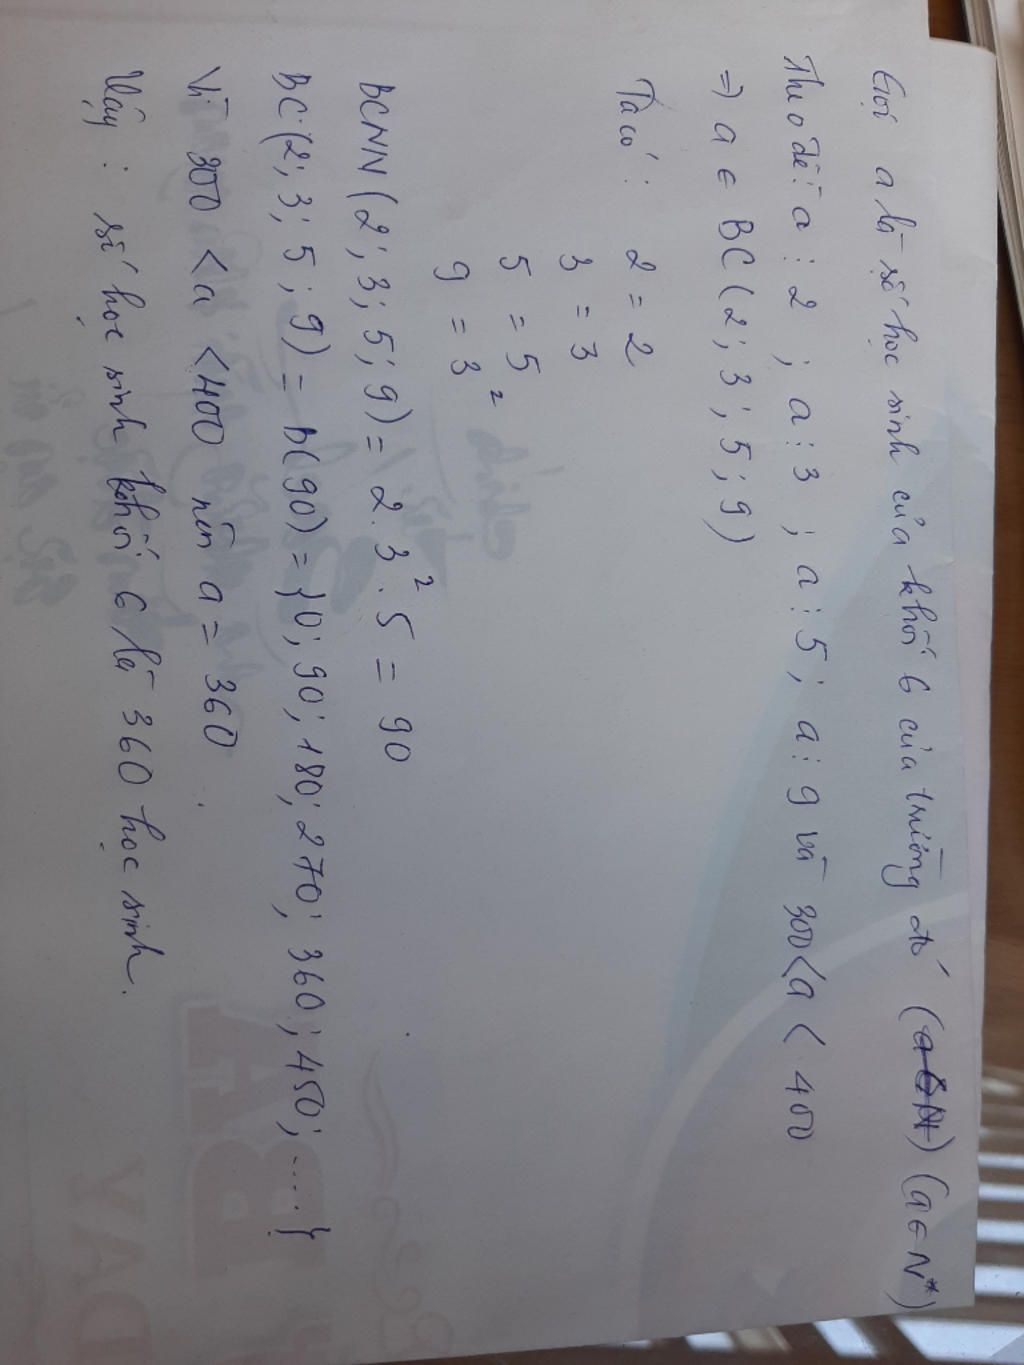 Gọi a là số học sinh của khối 6 của trường đó (a ∈ N) (a ∈ N*)
Theo đề: a ⋮ 2 ; a ⋮ 3 ; a ⋮ 5 ; a ⋮ 9 và 300 < a < 400
⇒ a ∈ BC (2 ; 3 ; 5 ; 9)
Ta có :
2 = 2
3 = 3
5 = 5
9 = 3²
BCNN (2 ; 3 ; 5 ; 9) = 2 . 3² . 5 = 90
BC (2 ; 3 ; 5 ; 9) = B(90) = {0 ; 90 ; 180 ; 270 ; 360 ; 450 ; ....}
Vì 300 < a < 400 nên a = 360
Vậy : số học sinh khối 6 là 360 học sinh.